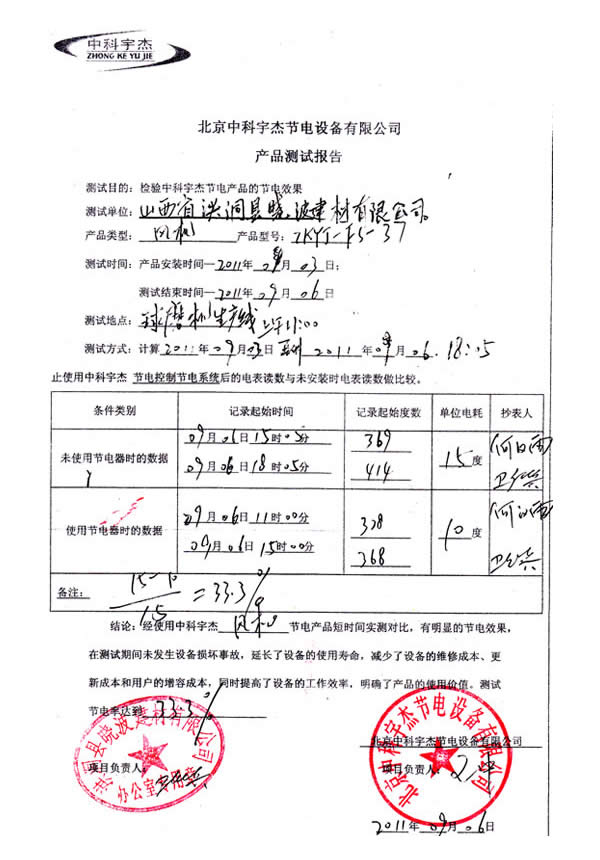 中科宇杰
ZHONG KE YU JIE
北京中科宇杰节电设备有限公司
产品测试报告
测试目的：检验中科宇杰节电产品的节电效果
测试单位：山西省洪洞县晓波建材有限公司。
产品类型：风机 产品型号：ZKYJ-FS-37
测试时间：产品安装时间—2011年09月03日；
测试结束时间—2011年09月06日
测试地点：球磨机生产线 上午11:00
测试方式：计算2011年09月03日至到2011年09月06. 18:05
止使用中科宇杰 节电控制节电系统后的电表读数与未安装时电表读数做比较。
条件类别 记录起始时间 记录起始度数 单位电耗 抄表人
未使用节电器时的数据 09月06日15时05分 369 15度
09月06日18时05分 414
使用节电器时的数据 09月06日11时00分 328 10度
09月06日15时00分 368
备注： 15-10/15 =33.3%
结论：经使用中科宇杰 风机 节电产品短时间实测对比，有明显的节电效果，
在测试期间未发生设备损坏事故，延长了设备的使用寿命，减少了设备的维修成本、更
新成本和用户的增容成本，同时提高了设备的工作效率，明确了产品的使用价值。测试
节电率达到 33.3%
洪洞县晓波建材有限公司
办公室专用章
项目负责人：
北京中科宇杰节电设备有限公司
北京中科宇杰节电设备有限公司
项目负责人：
2011年09月06日